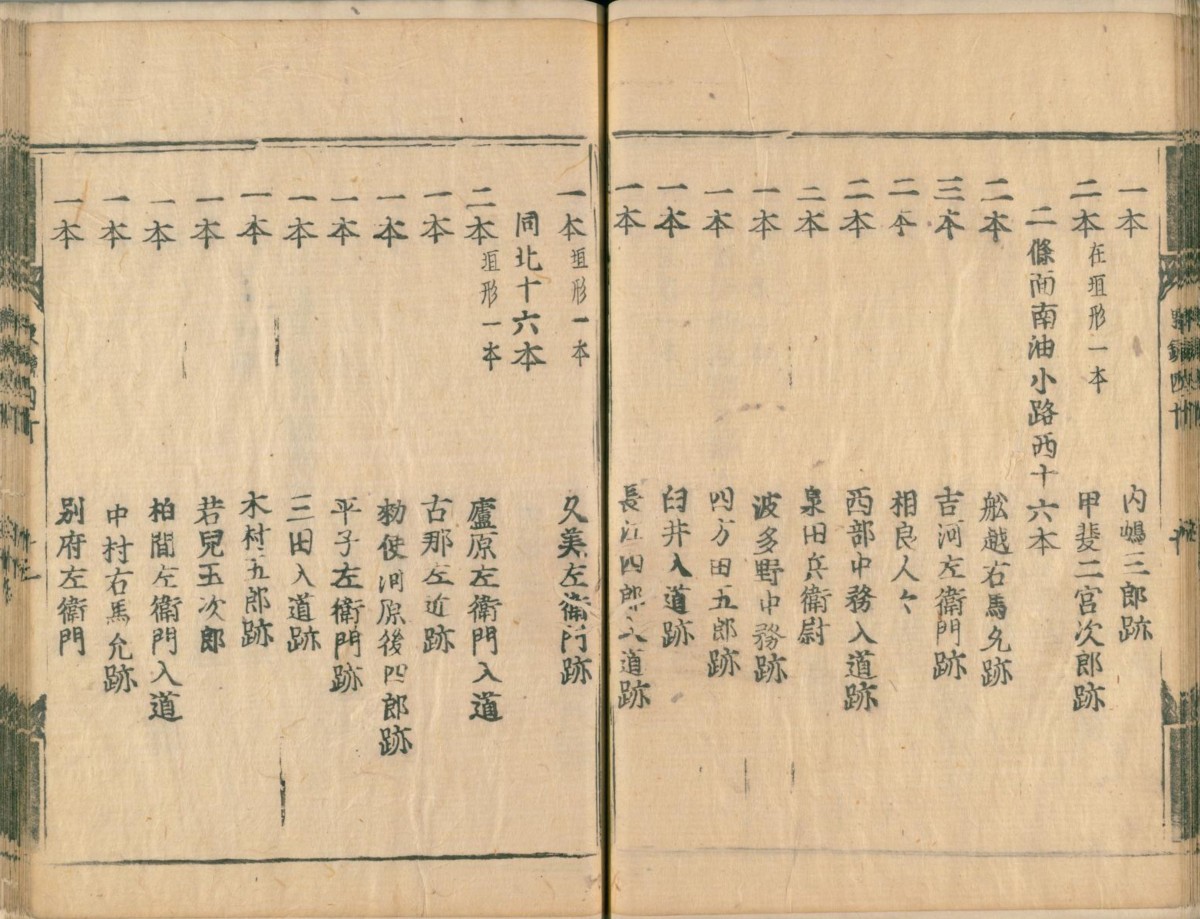 一本 内嶋三郎跡
二本 在垣形一本 甲斐二宮次郎跡
二條面南油小路西十六本
二本 舩越右馬允跡
三本 吉河左衛門跡
二本 相良人々
二本 西部中務入道跡
二本 泉田兵衛尉
一本 波多野中務跡
一本 四方田五郎跡
一本 臼井入道跡
一本 長江四郎入道跡
一本 垣形一本 久美左衛門跡
同北十六本
二本 垣形一本 廬原左衛門入道
一本 古那左近跡
一本 勅使河原後四郎跡
一本 平子左衛門跡
一本 三田入道跡
一本 木村五郎跡
一本 若兒玉次郎
一本 柏間左衛門入道
一本 中村右馬允跡
一本 別府左衛門